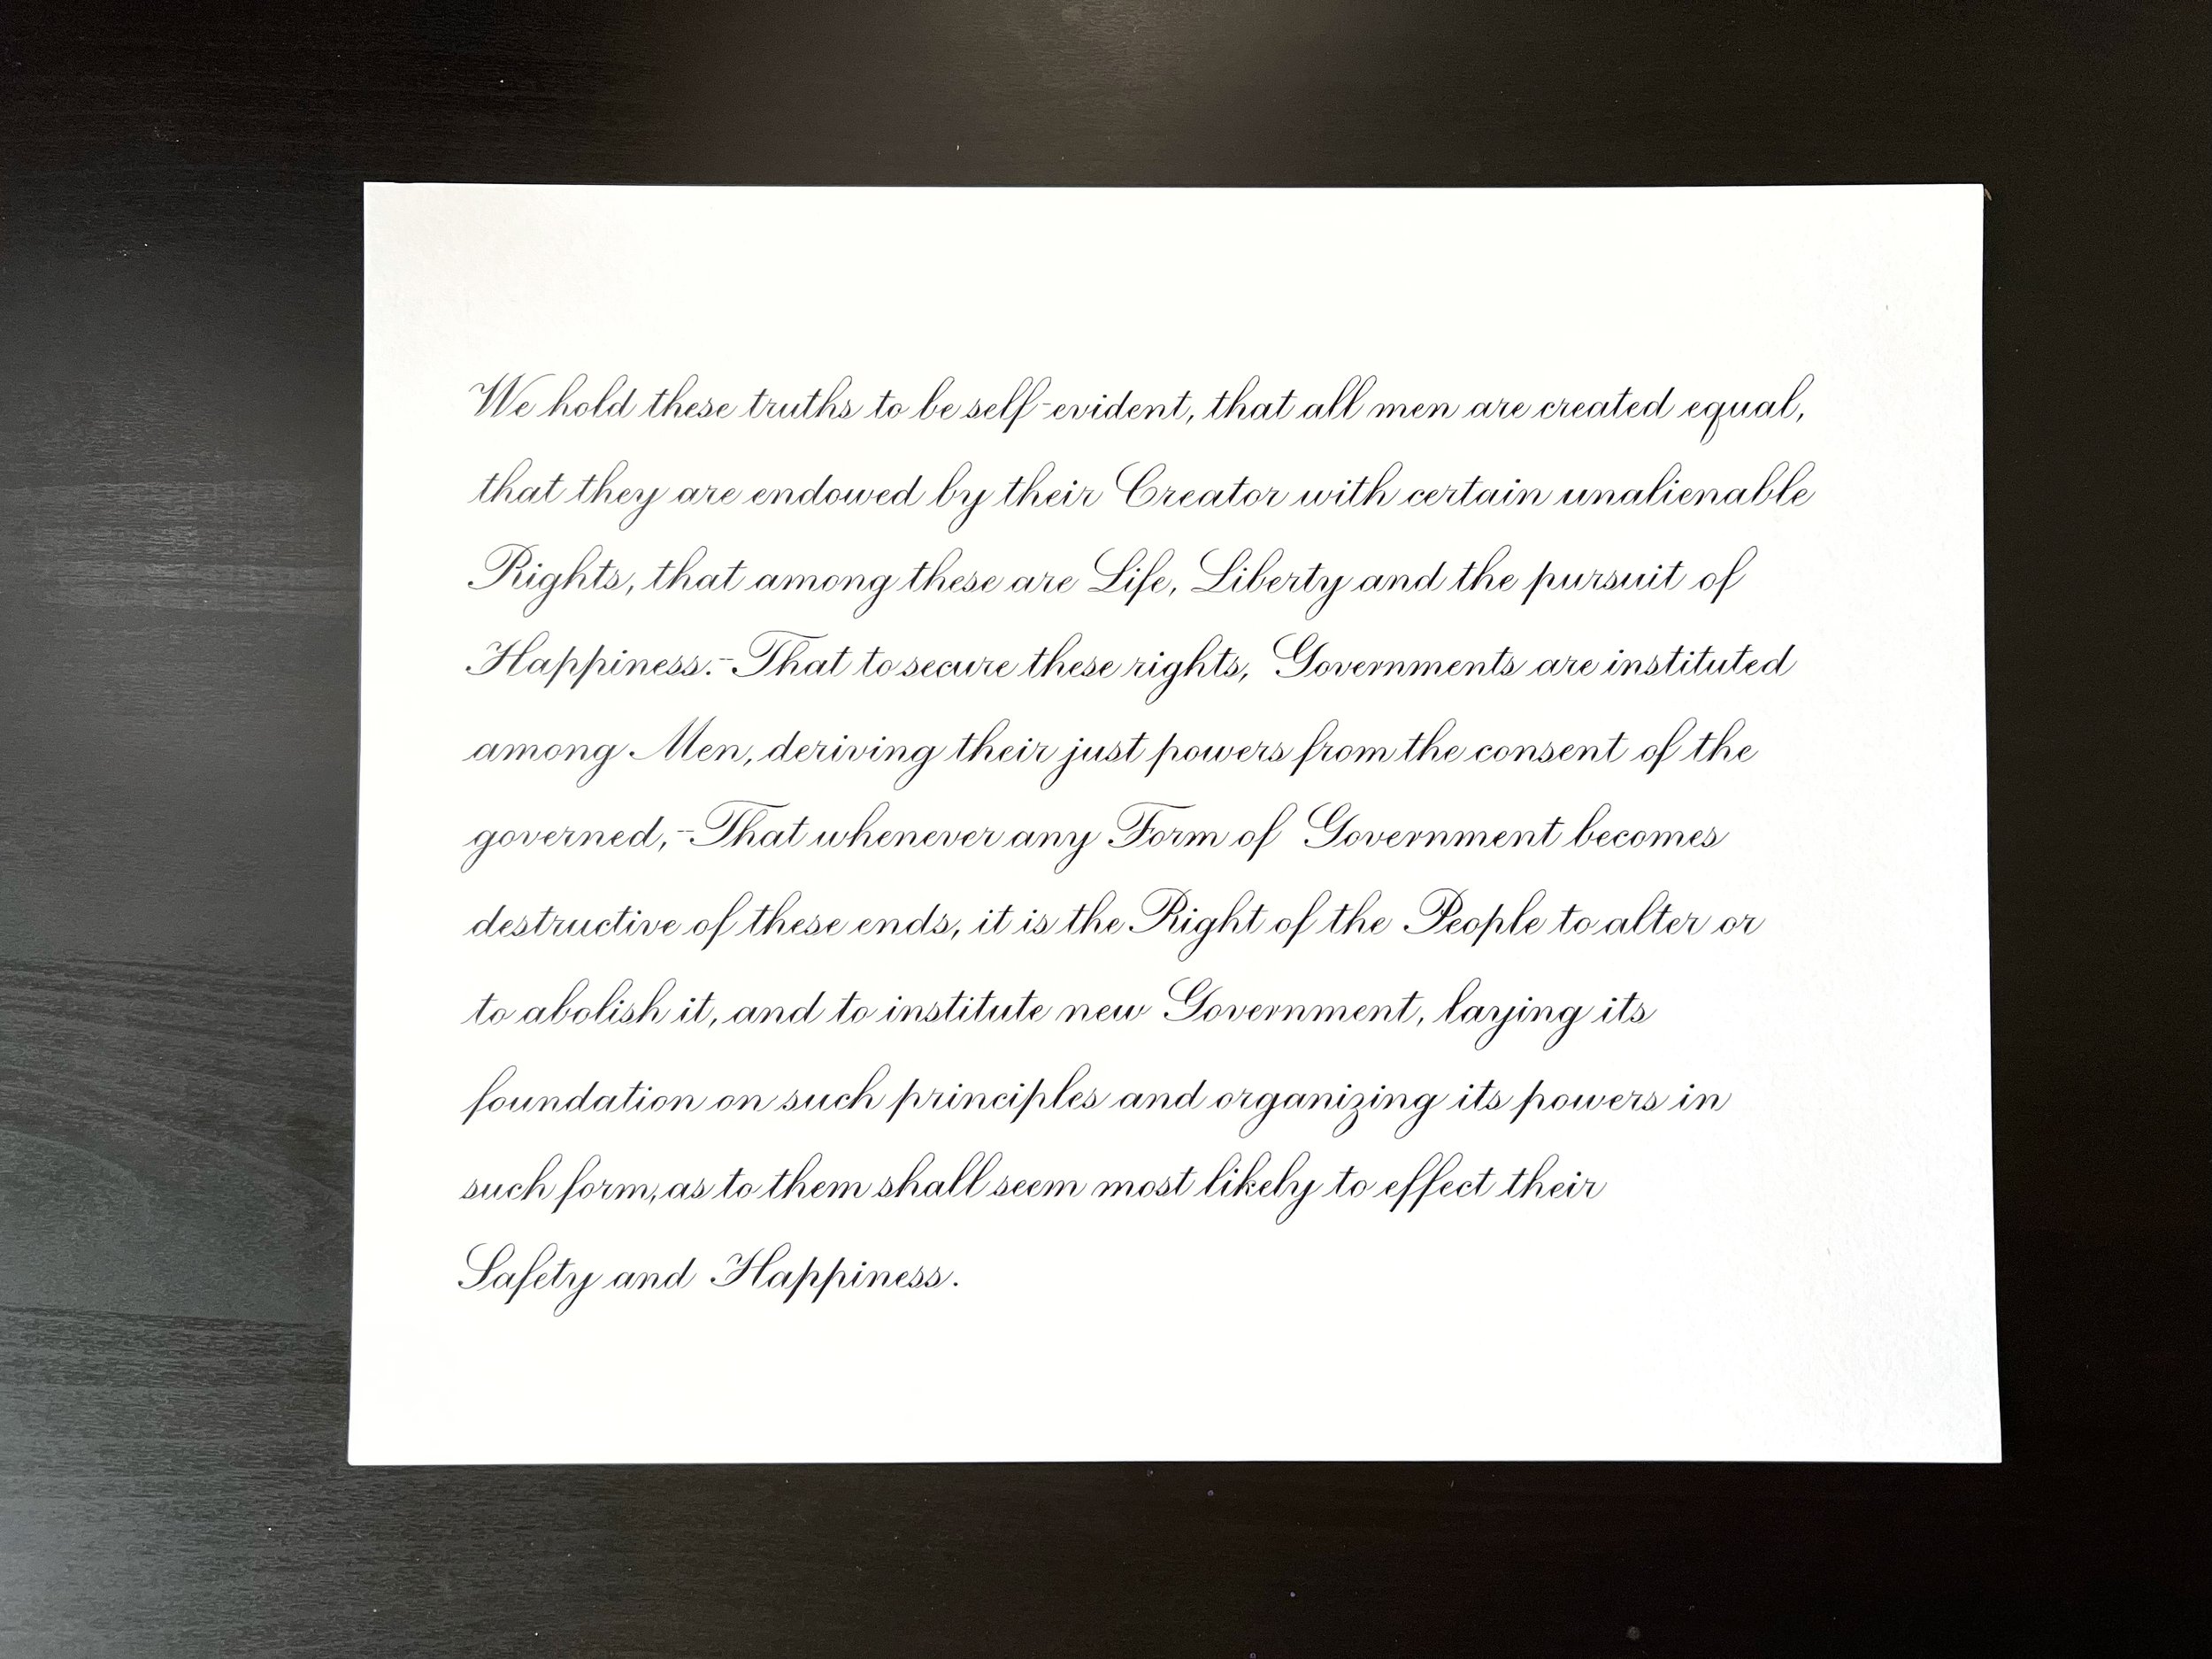 We hold these truths to be self-evident, that all men are created equal,
that they are endowed by their Creator with certain unalienable
Rights, that among these are Life, Liberty and the pursuit of
Happiness.--That to secure these rights, Governments are instituted
among Men, deriving their just powers from the consent of the
governed,--That whenever any Form of Government becomes
destructive of these ends, it is the Right of the People to alter or
to abolish it, and to institute new Government, laying its
foundation on such principles and organizing its powers in
such form, as to them shall seem most likely to effect their
Safety and Happiness.